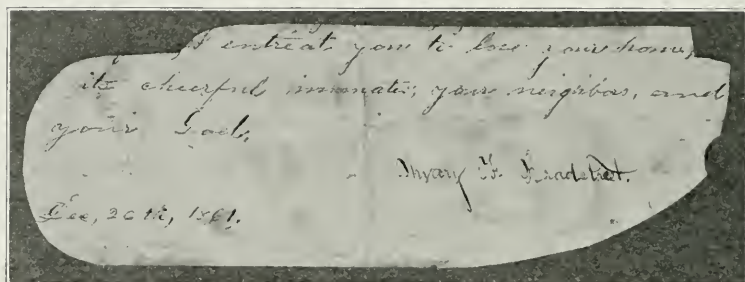 I entreat you to love your home,
its cheerful inmates, your neighbors, and
your God.
Mary
Dec, 20th, 1861.